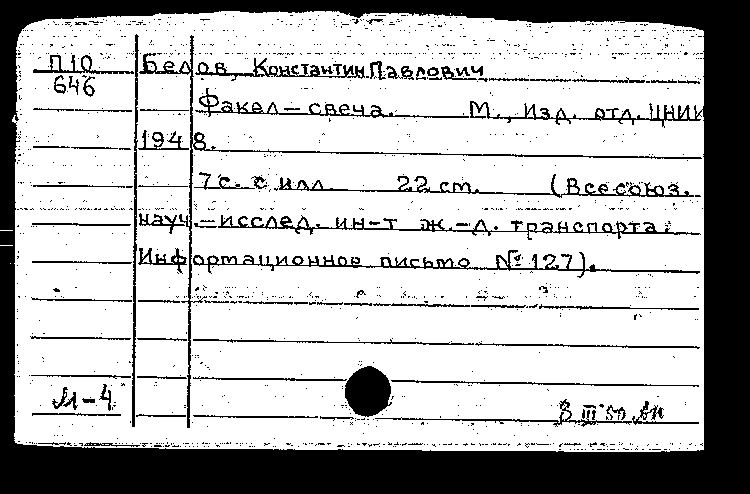 П10 Белов, Константин Павлович
646
Факел — свеча. М., Изд. отд. ЦНИИ
1948.
7 с. с илл. 22 cm. (Всесоюз.
науч.-исслед. ин-т ж.-д. транспорта.
Информационное письмо № 127).
М-4
8 III 50